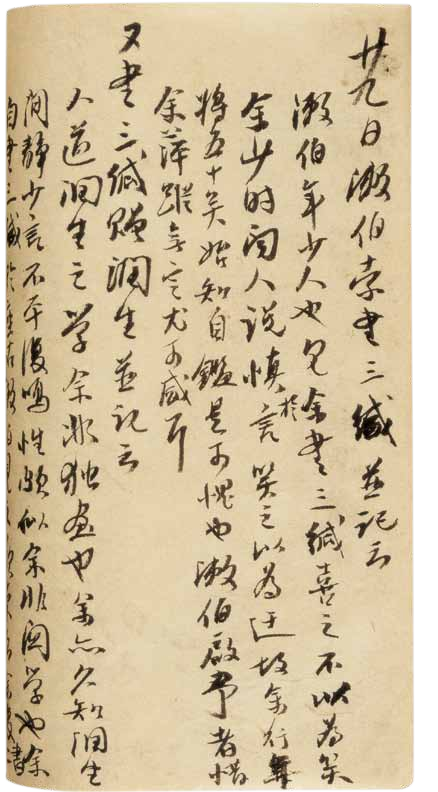 廿九日漵伯索書三緘並記云
漵伯年少人也見余書三緘喜之不以為笑
余少時聞人說慎於言笑之以為迂故余行年
將五十矣始知自鑑是可愧也漵伯啟予者惜
余萍蹤無定尤可感耳
又書三緘贈潤生並記云
人道潤生之學余非獨画也余亦久知潤生
閒靜少言不平復鳴性頗似余非関學也余
自書三緘於座右